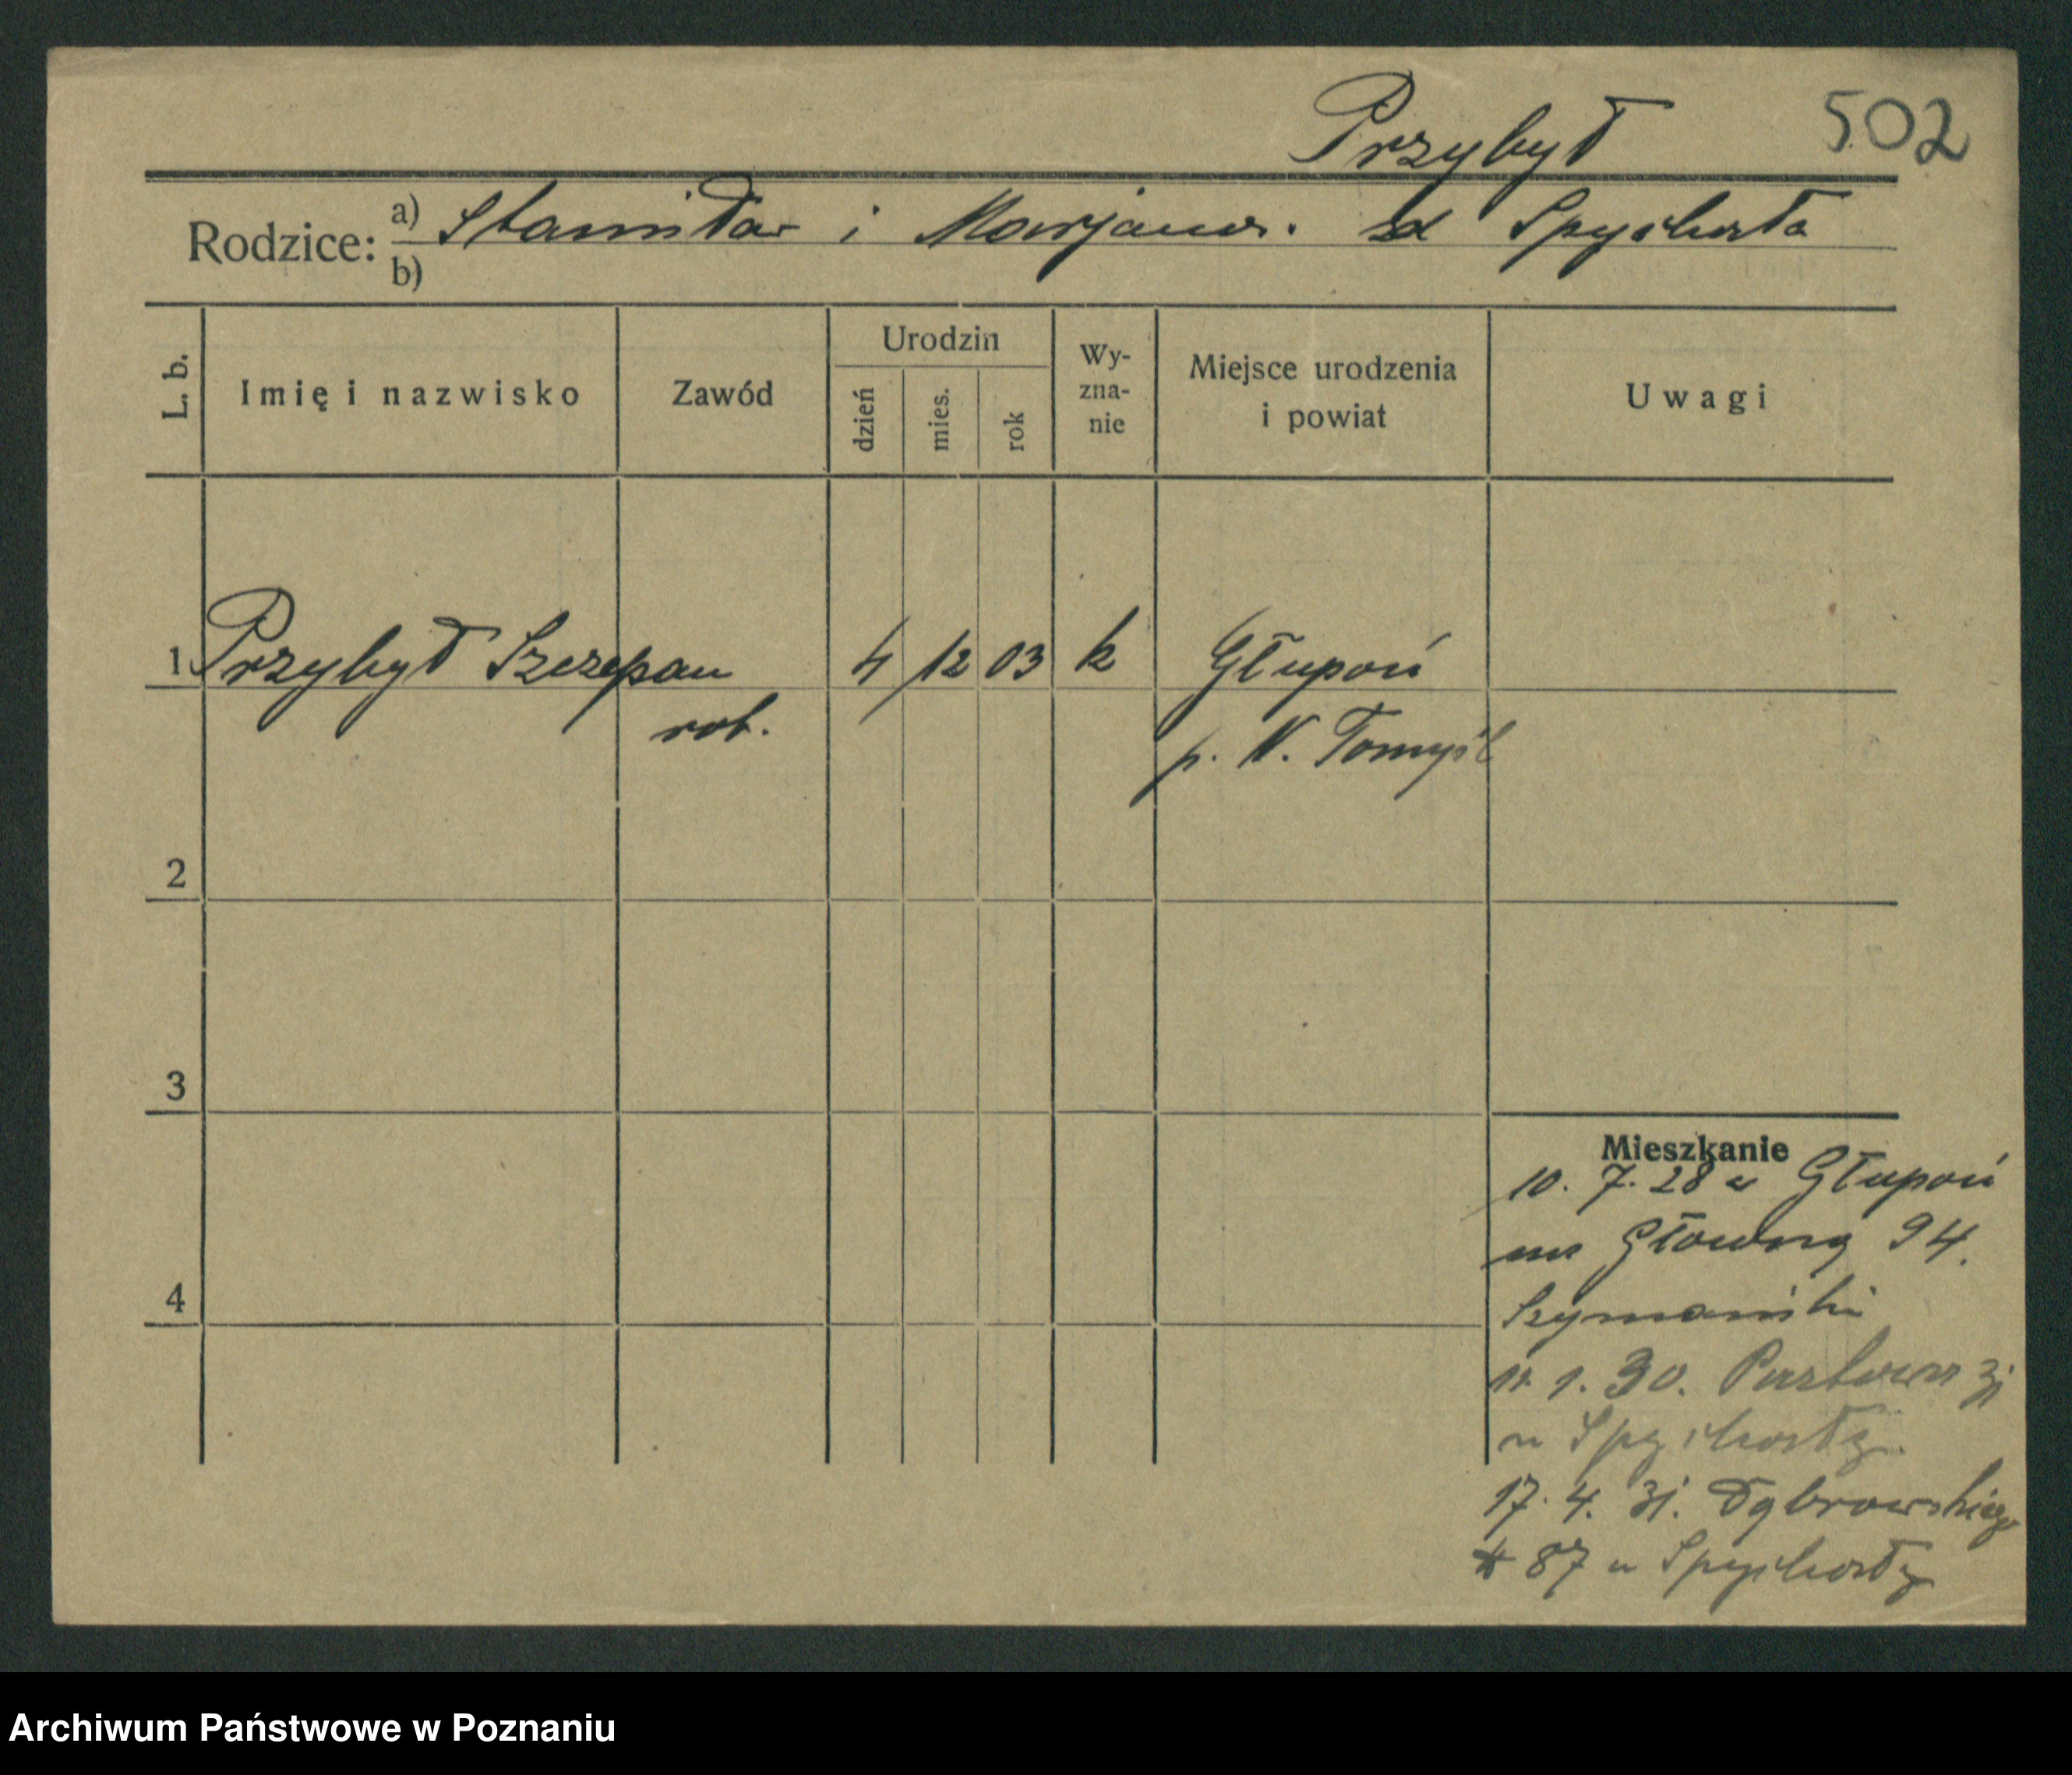 Przybył 502
Rodzice: a) Stanisław i Marjana. zd Spychała
b)
L. b. Imię i nazwisko Zawód Urodzin dzień mies. rok Wy-zna-nie Miejsce urodzenia i powiat Uwagi
1 Przybył Szczepan 4 12 03 k Głupoń
rob. p. N. Tomyśl
2
3
Mieszkanie
10. 7. 28 z Głupoń
na Główną 94.
4
Szymański
1. 30.
u Spychały.
17. 4. 31. Dąbrowskiego
87 u Spychały
Archiwum Państwowe w Poznaniu